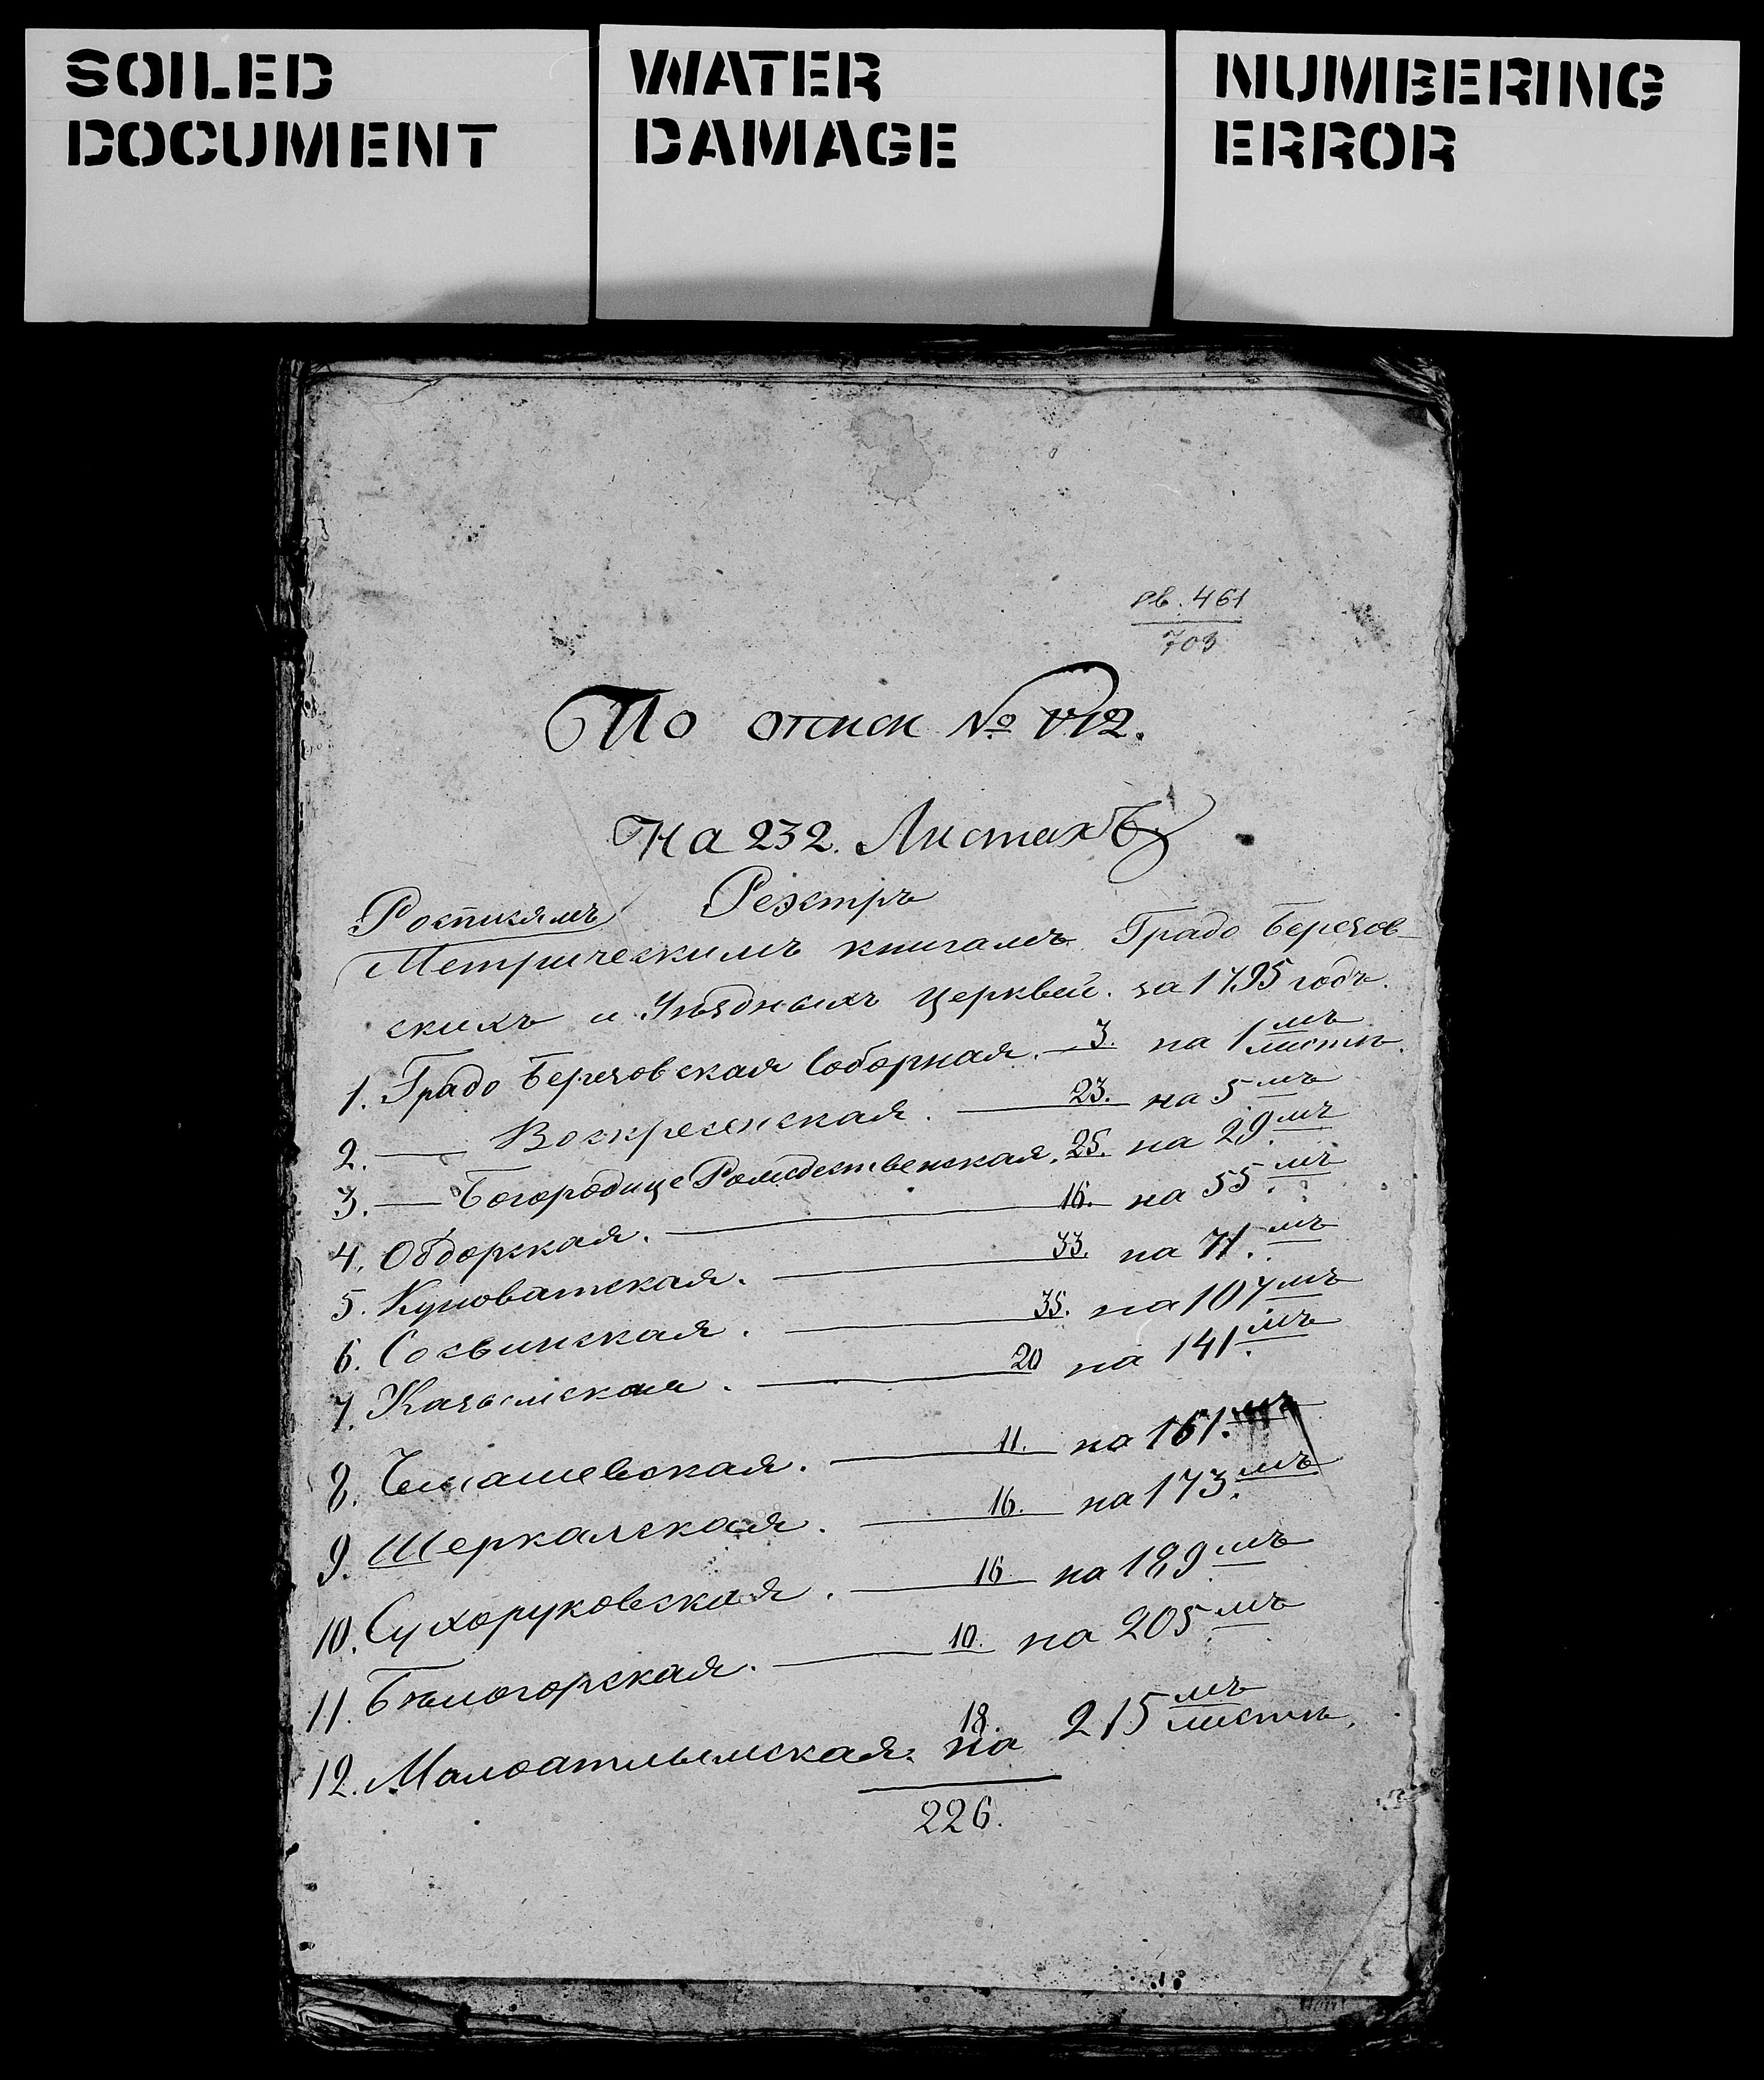 SOILED
DOCUMENT
WATER
DAMAGE
NUMBERING
ERROR
св. 461
703
По описи №
На 232. Листахъ
Реэстръ
Росписямъ
Метрическимъ книгамъ Градо Березов-
скихъ и Уѣздныхъ церквей. за 1795 годъ.
1. Градо Березовская Соборная. 3. на 1 мъ листѣ.
2. — Воскресенская. 23. на 5 мъ
3. — Богородице Рождественская. 25. на 29. мъ
4. Обдорская. 16. на 55. мъ
5. Куноватская. 33. на 71. мъ
6. Сосвинская. 35. на 107 мъ
7. Казымская. 20 на 141. мъ
8. Чемашевская. 11. на 161. мъ
9. Шеркалская. 16. на 173. мъ
10. Сухоруковская. 16 на 189 мъ
11. Бѣлогорская. 10. на 205 мъ
12. Малоатлымская. 18. на 215 мъ листѣ.
226.